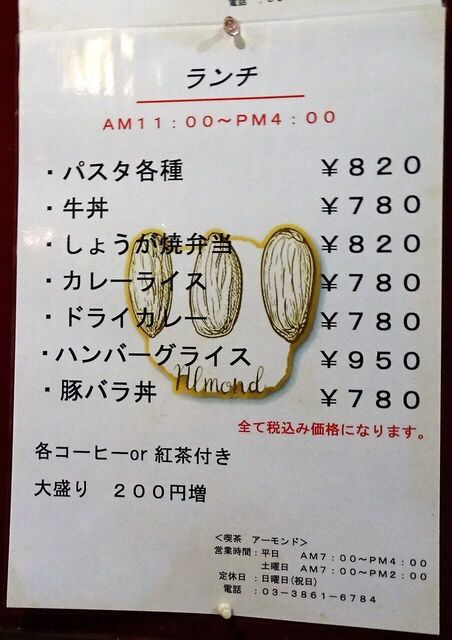 ランチ
AM11：00～PM4：00
・パスタ各種 ￥820
・牛丼 ￥780
・しょうが焼弁当 ￥820
・カレーライス ￥780
・ドライカレー ￥780
・ハンバーグライス ￥950
Almond
・豚バラ丼 ￥780
全て税込み価格になります。
各コーヒーor 紅茶付き
大盛り 200円増
＜喫茶 アーモンド＞
営業時間：平日 AM7：00～PM4：00
土曜日 AM7：00～PM2：00
定休日：日曜日(祝日)
電話：03-3861-6784